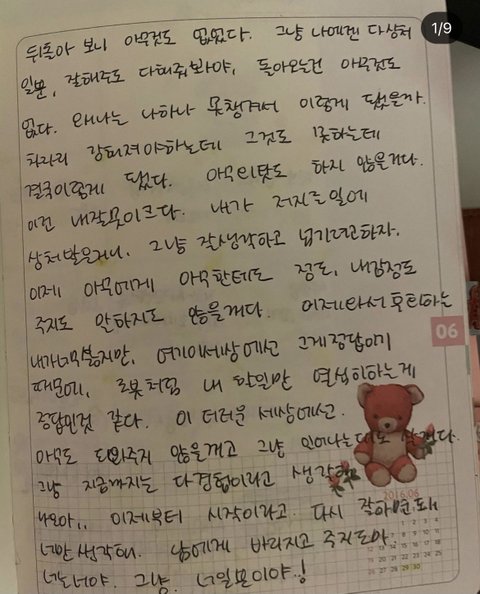 1/9
뒤돌아 보니 아무것도 없었다. 그냥 나에겐 다상처
일뿐, 잘해주도 다해줘봐야, 돌아오는건 아무것도
없다. 왜나는 나하나 못챙겨서 이렇게 됐을까.
차라리 강해져야하는데 그것도 못하는데
결국이렇게 됐다. 아무리탓도 하지 않을거다.
이건 내잘못이크다. 내가 저지른일에
상처받은거니, 그냥 잘생각하고 넘기려고하자.
이제 아무에게 아무한테도 정도, 내감정도
주지도 말하지도 않을꺼다. 이제와서 후회하는
내가너무싫지만, 여기이세상에선 그게정답이기
때문에, 로봇처럼 내 할일만 열심히하는게
정답인것 같다. 이 더러운 세상에선.
06
아무도 도와주지 않을꺼고 그냥
그냥 지금까지는 다경험이라고 생각해
2016.06
나오아,, 이제부터 시작이라고. 다시 잡아면 돼
너만생각해. 남에게 바라지고 주지도마.
너는너야. 그냥. 너일뿐이야.!